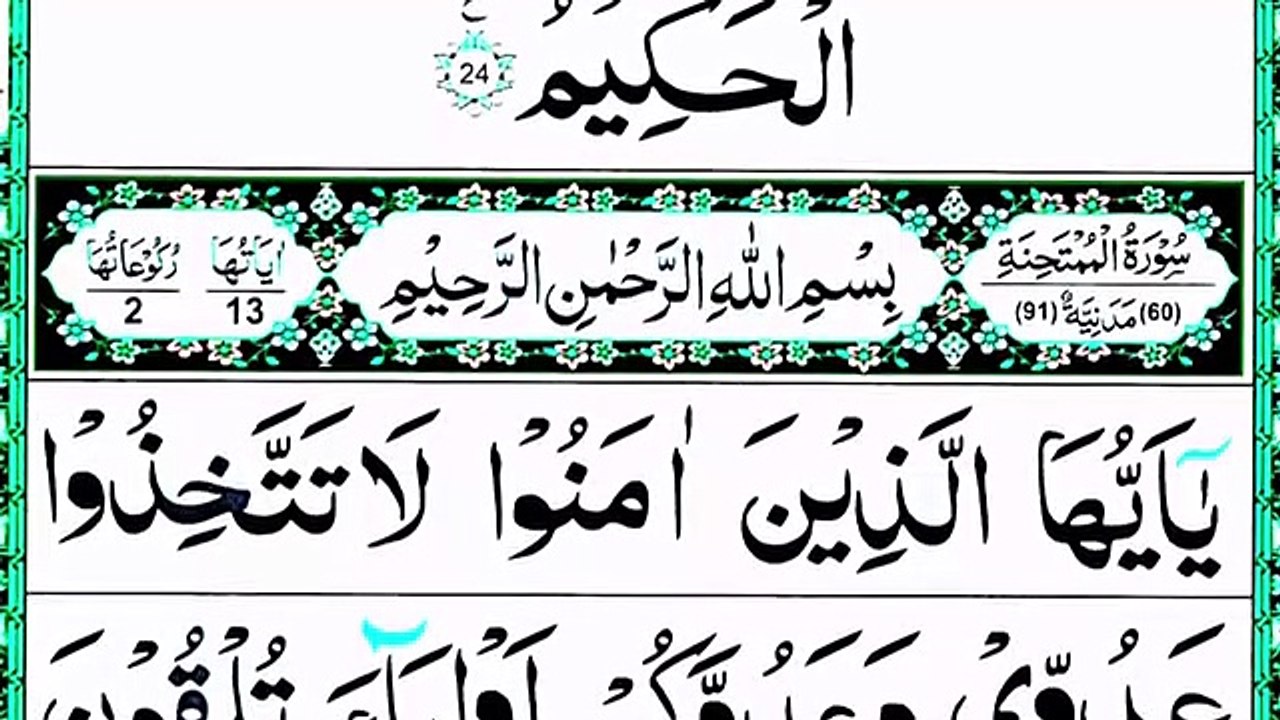 الْحَكِيْمُ 24
سُوْرَةُ الْمُمْتَحِنَةِ
(60) مَدَنِيَّةٌ (91)
بِسْمِ اللّٰهِ الرَّحْمٰنِ الرَّحِيْمِ
اٰيَاتُهَا 13
رُكُوْعَاتُهَا 2
يٰۤاَيُّهَا الَّذِيْنَ اٰمَنُوْا لَا تَتَّخِذُوْا
عَدُوِّيْ وَعَدُوَّكُمْ اَوْلِيَآءَ تُلْقُوْنَ